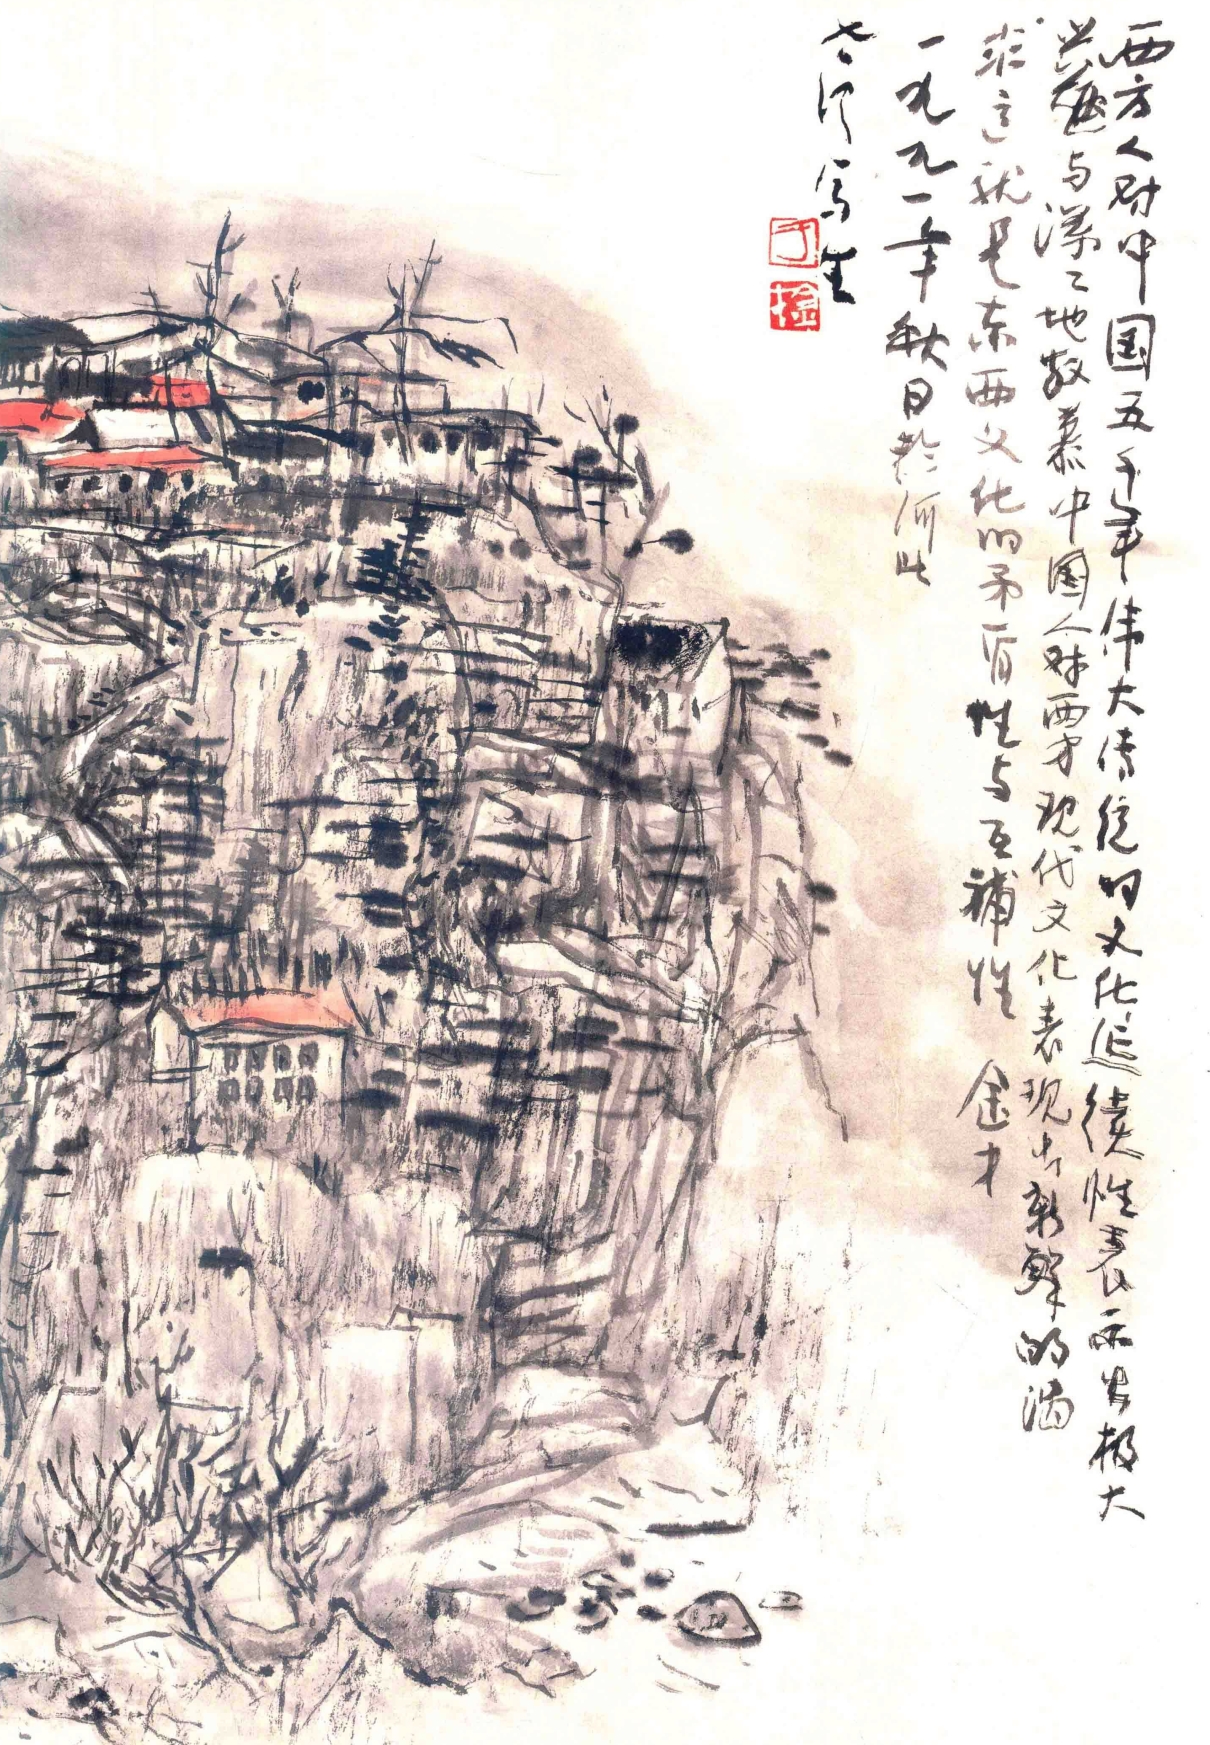 西方人对中国五千年伟大传统的文化延续性表示出极大
兴趣与深深地敬慕中国人对西方现代文化表现出新鲜的渴
求这就是东西文化的矛盾性与互补性
一九九一年秋日於河北
写生